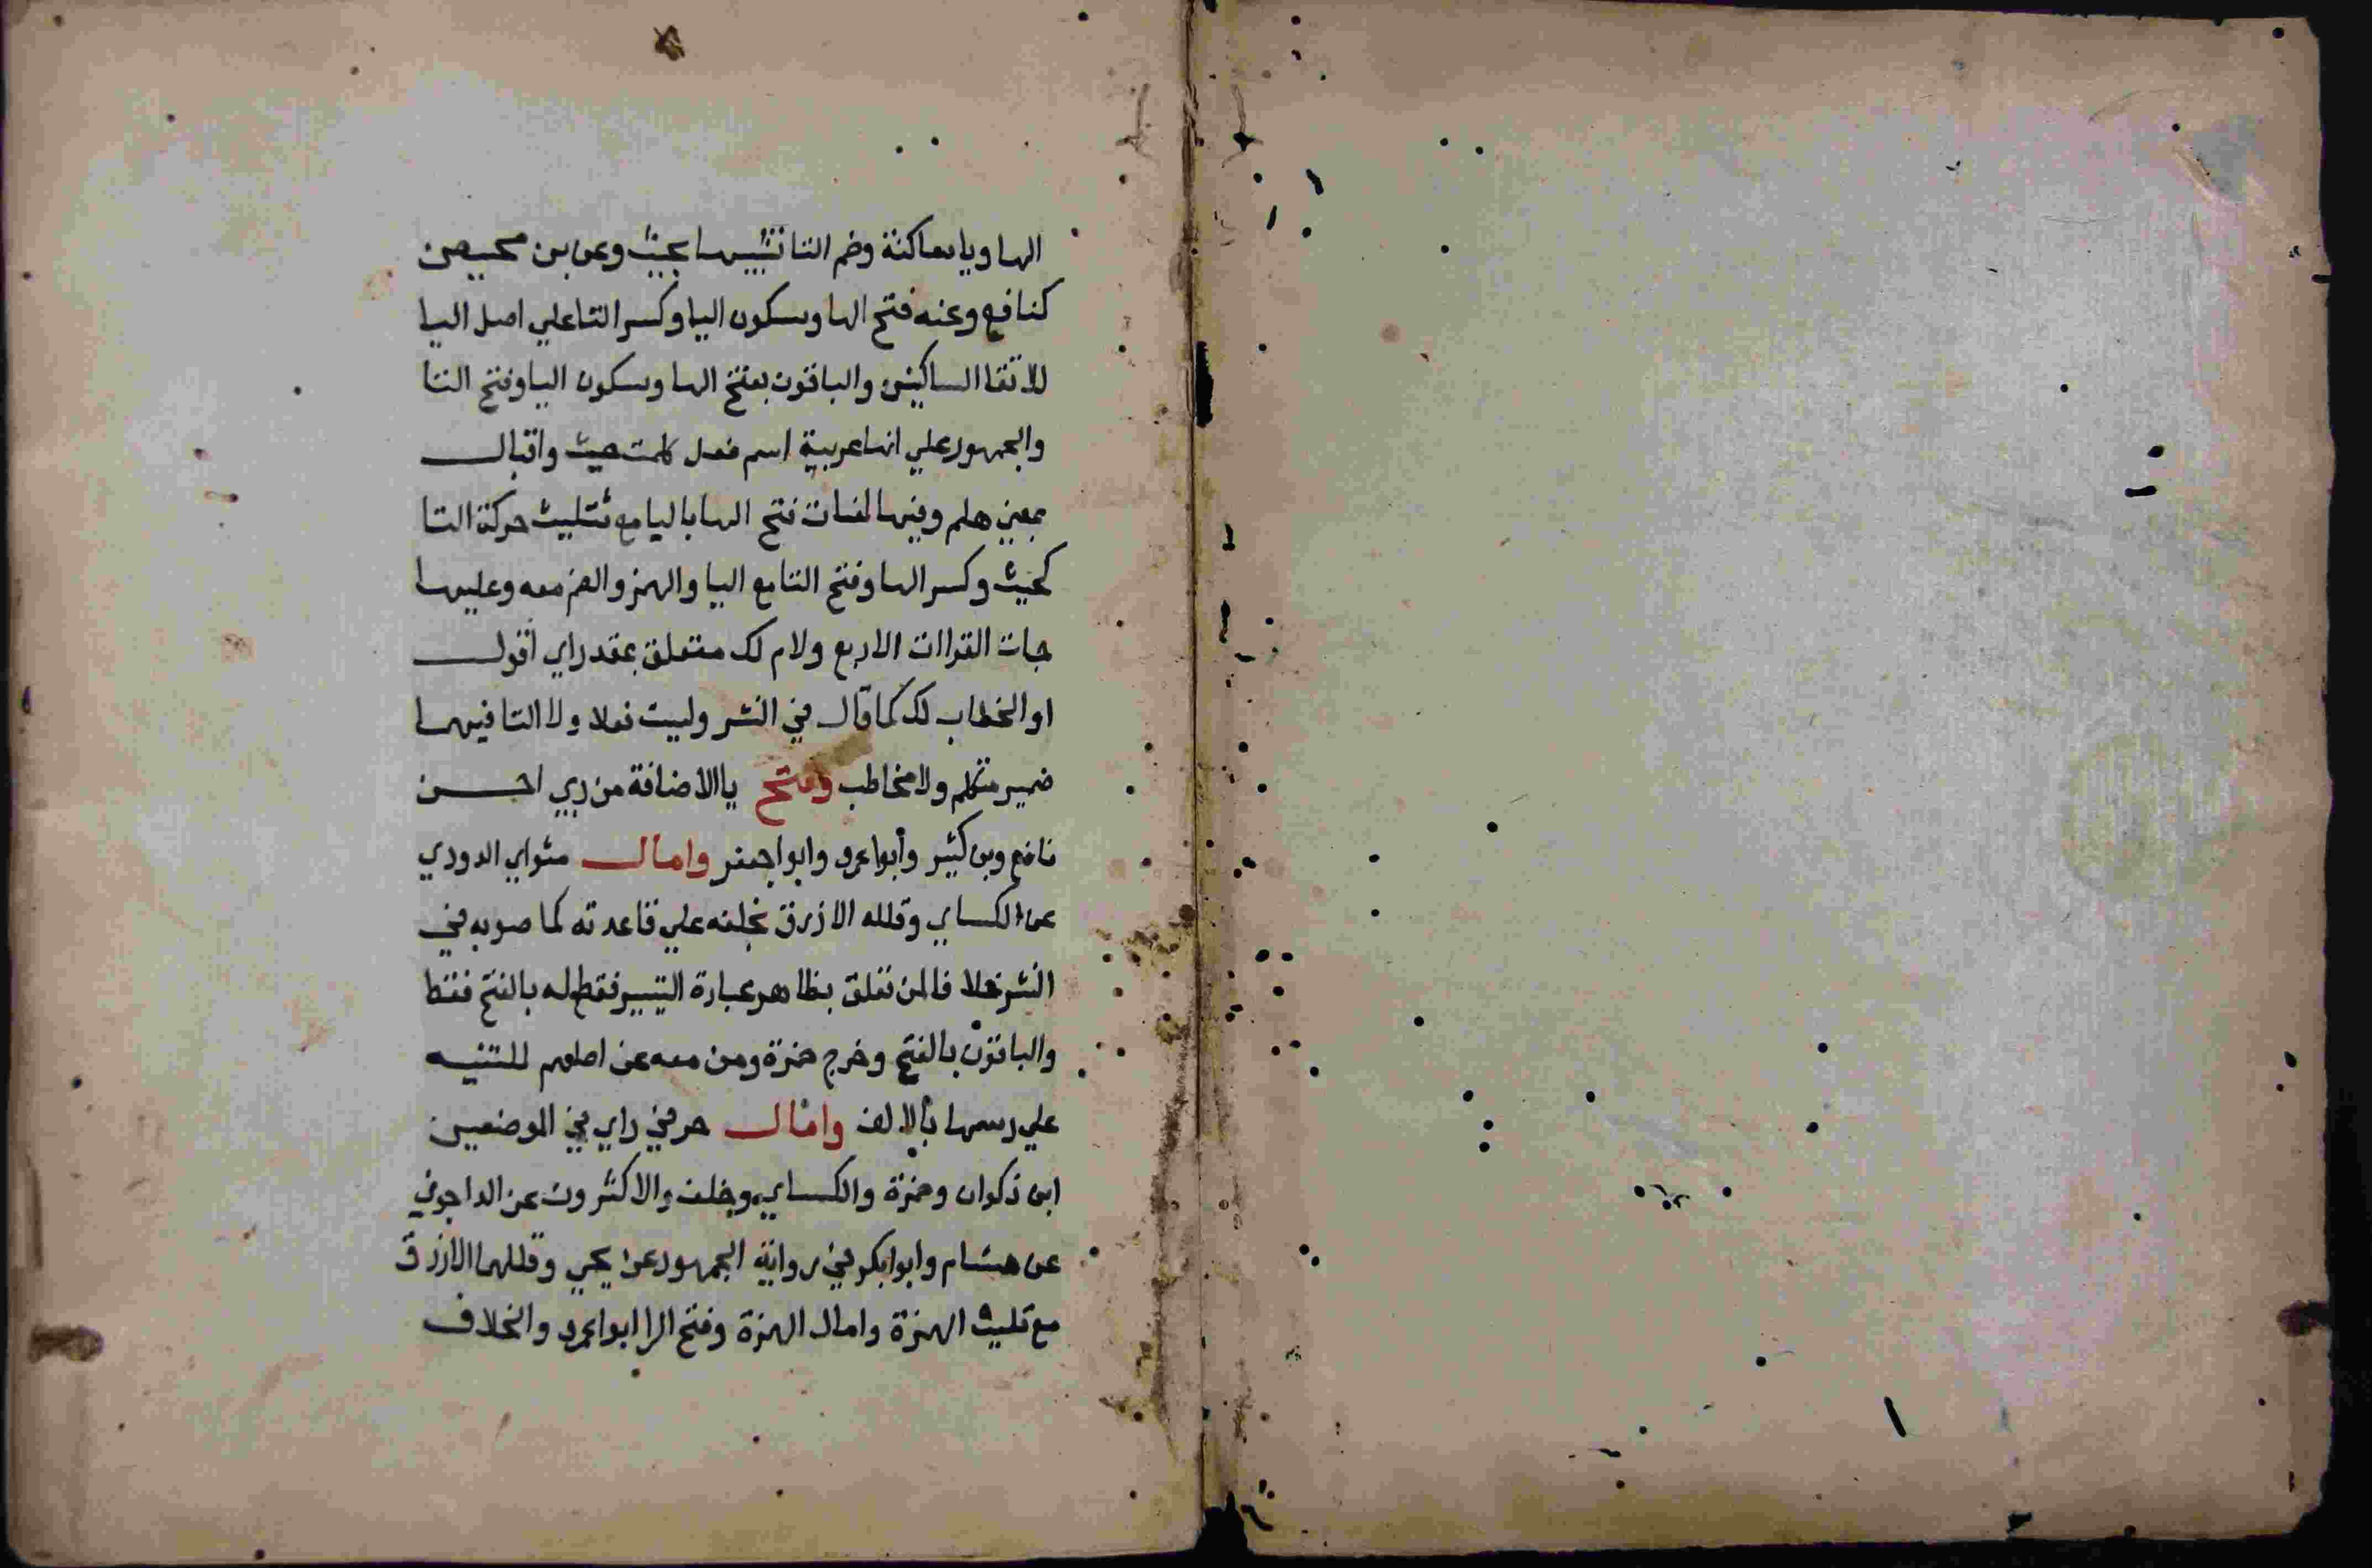 الها ويا ساكنة وضم التا تشبيها بحيث وعن بن محيصن
كنافع وعنه فتح الها وسكون اليا وكسر التا علي اصل اليا
للاتقا الساكنين والباقون بفتح الها وسكون اليا وفتح التا
والجمهور علي انها عربية اسم فعل كلمت حيث واقبال
بمعني هلم وفيها لغات فتح الها باليا مع تثليث حركة التا
كحيث وكسر الها وفتح التا مع اليا والهمز والضم معه وعليها
جات القراات الاربع ولام لك متعلق بمقدر اي اقول
او الخطاب لك كما قال في النشر وليست فعلا ولا التا فيها
ضمير متكلم ولا مخاطب وفتح يا الاضافة من ربي احسن
نافع وبن كثير وأبوا عمرو وابوا جعفر وامال مثواي الدوري
عن الكساي وقلله الازرق بخلفه علي قاعدته كما صوبه في
النشر خلافا لمن تعلق بظاهر عبارة التيسير فقطع له بالفتح فقط
والباقون بالفتح وخرج حمزة ومن معه عن اصلهم للتنبيه
علي رسمها بالالف وامال حرفي راي في الموضعين
ابن ذكوان وحمزة والكساي وخلف والاكثرون عن الداجوني
عن هشام وابوا بكر في رواية الجمهور عن يحيي وقللهما الازرق
مع تثليث الهمزة وامال الهمزة وفتح الرا ابوا عمرو والخلاف